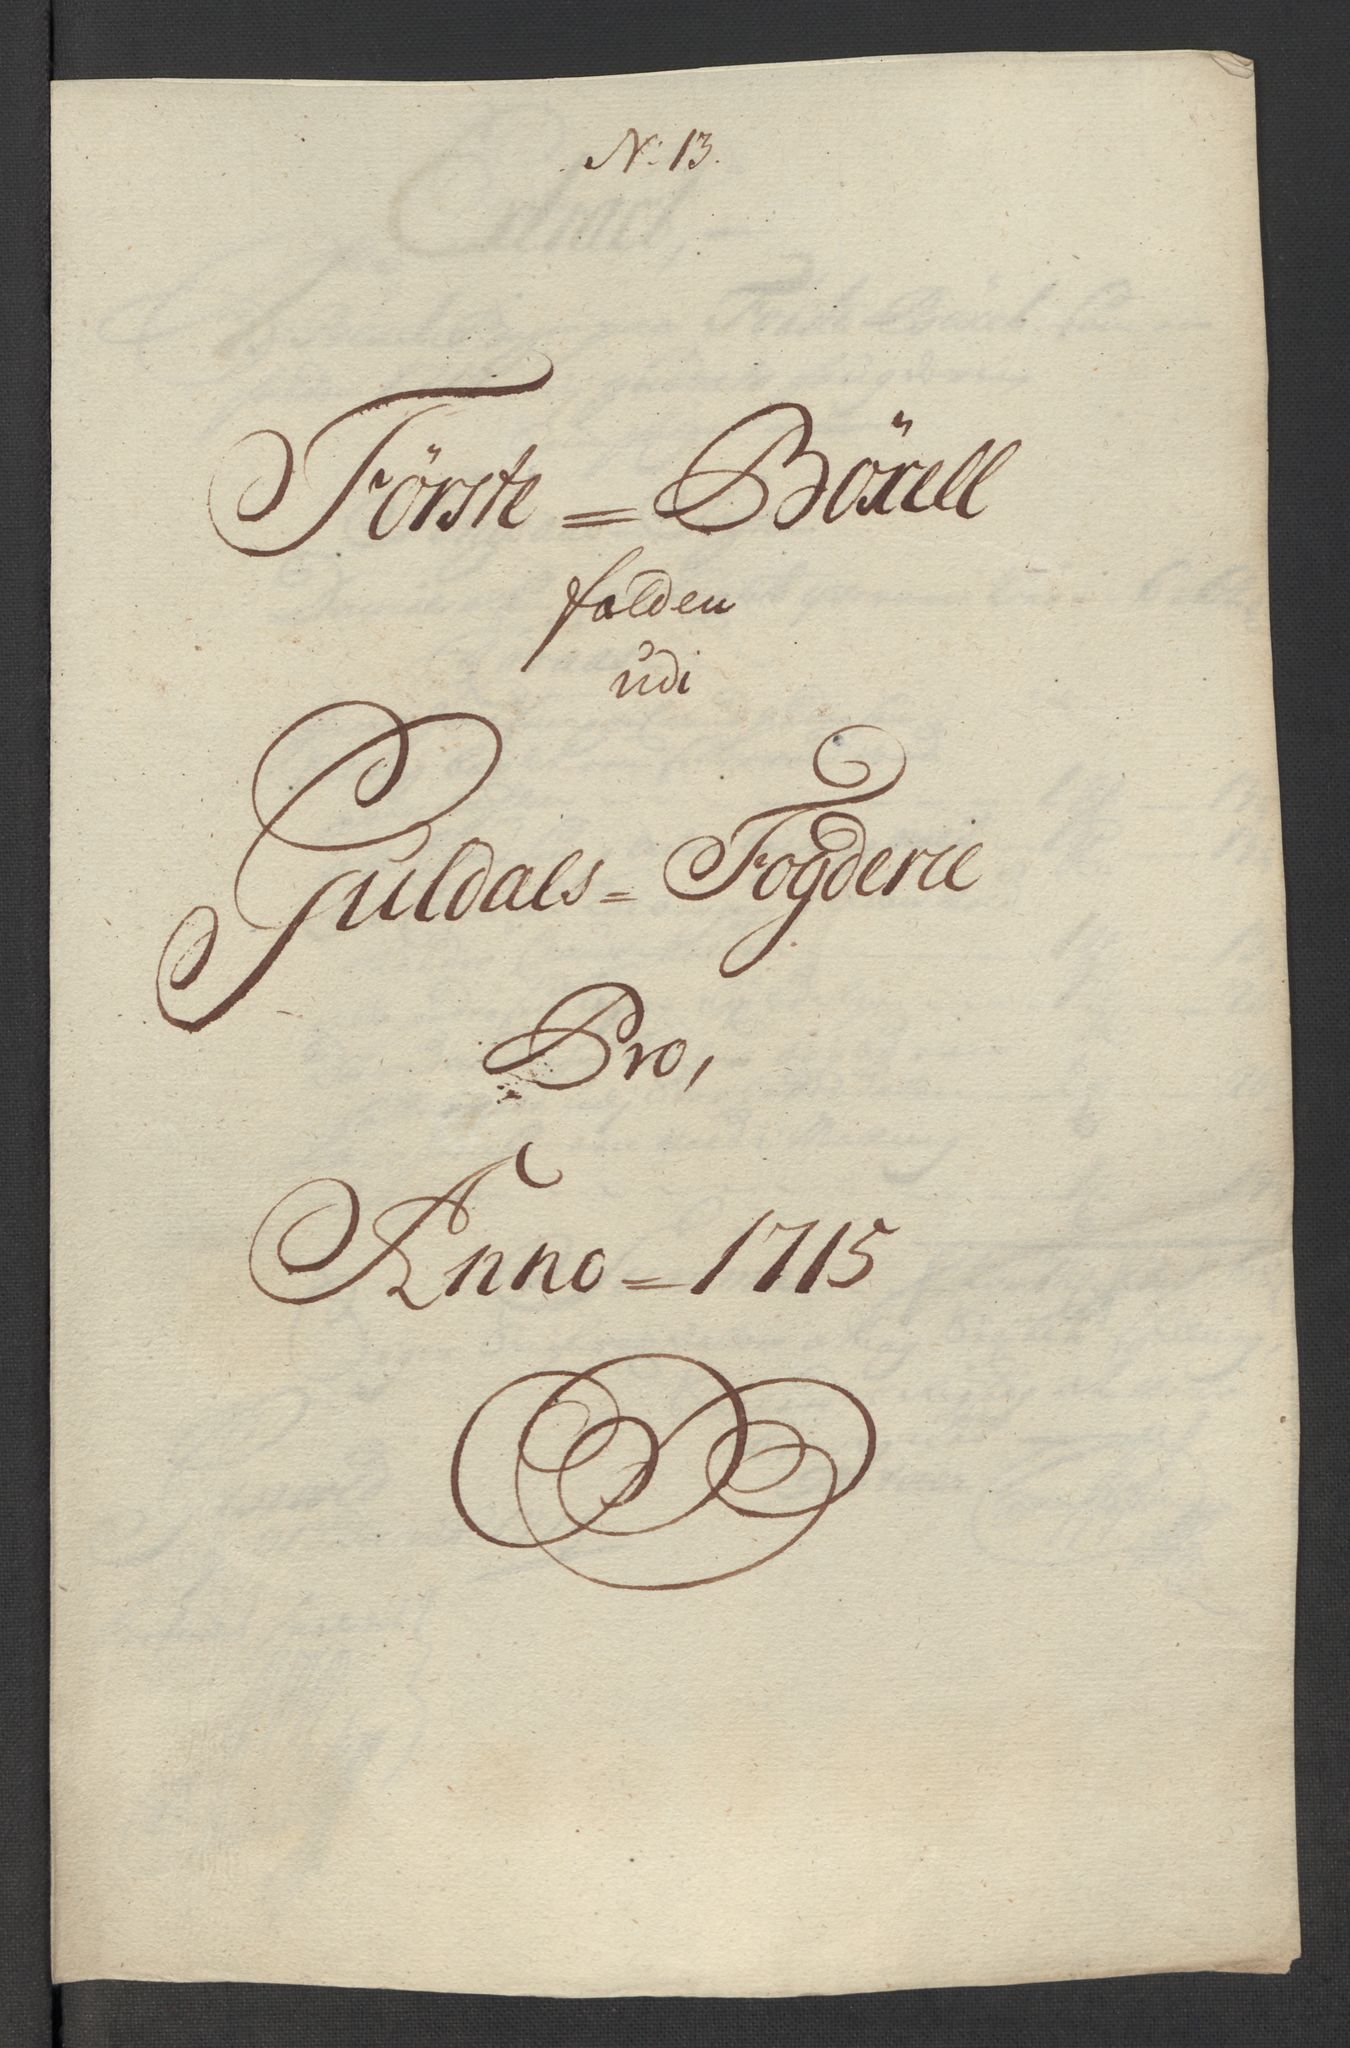 No: 13.
Förste = Böxell
falden
udi
Guldals = Fogderie
Pro,
Anno = 1715